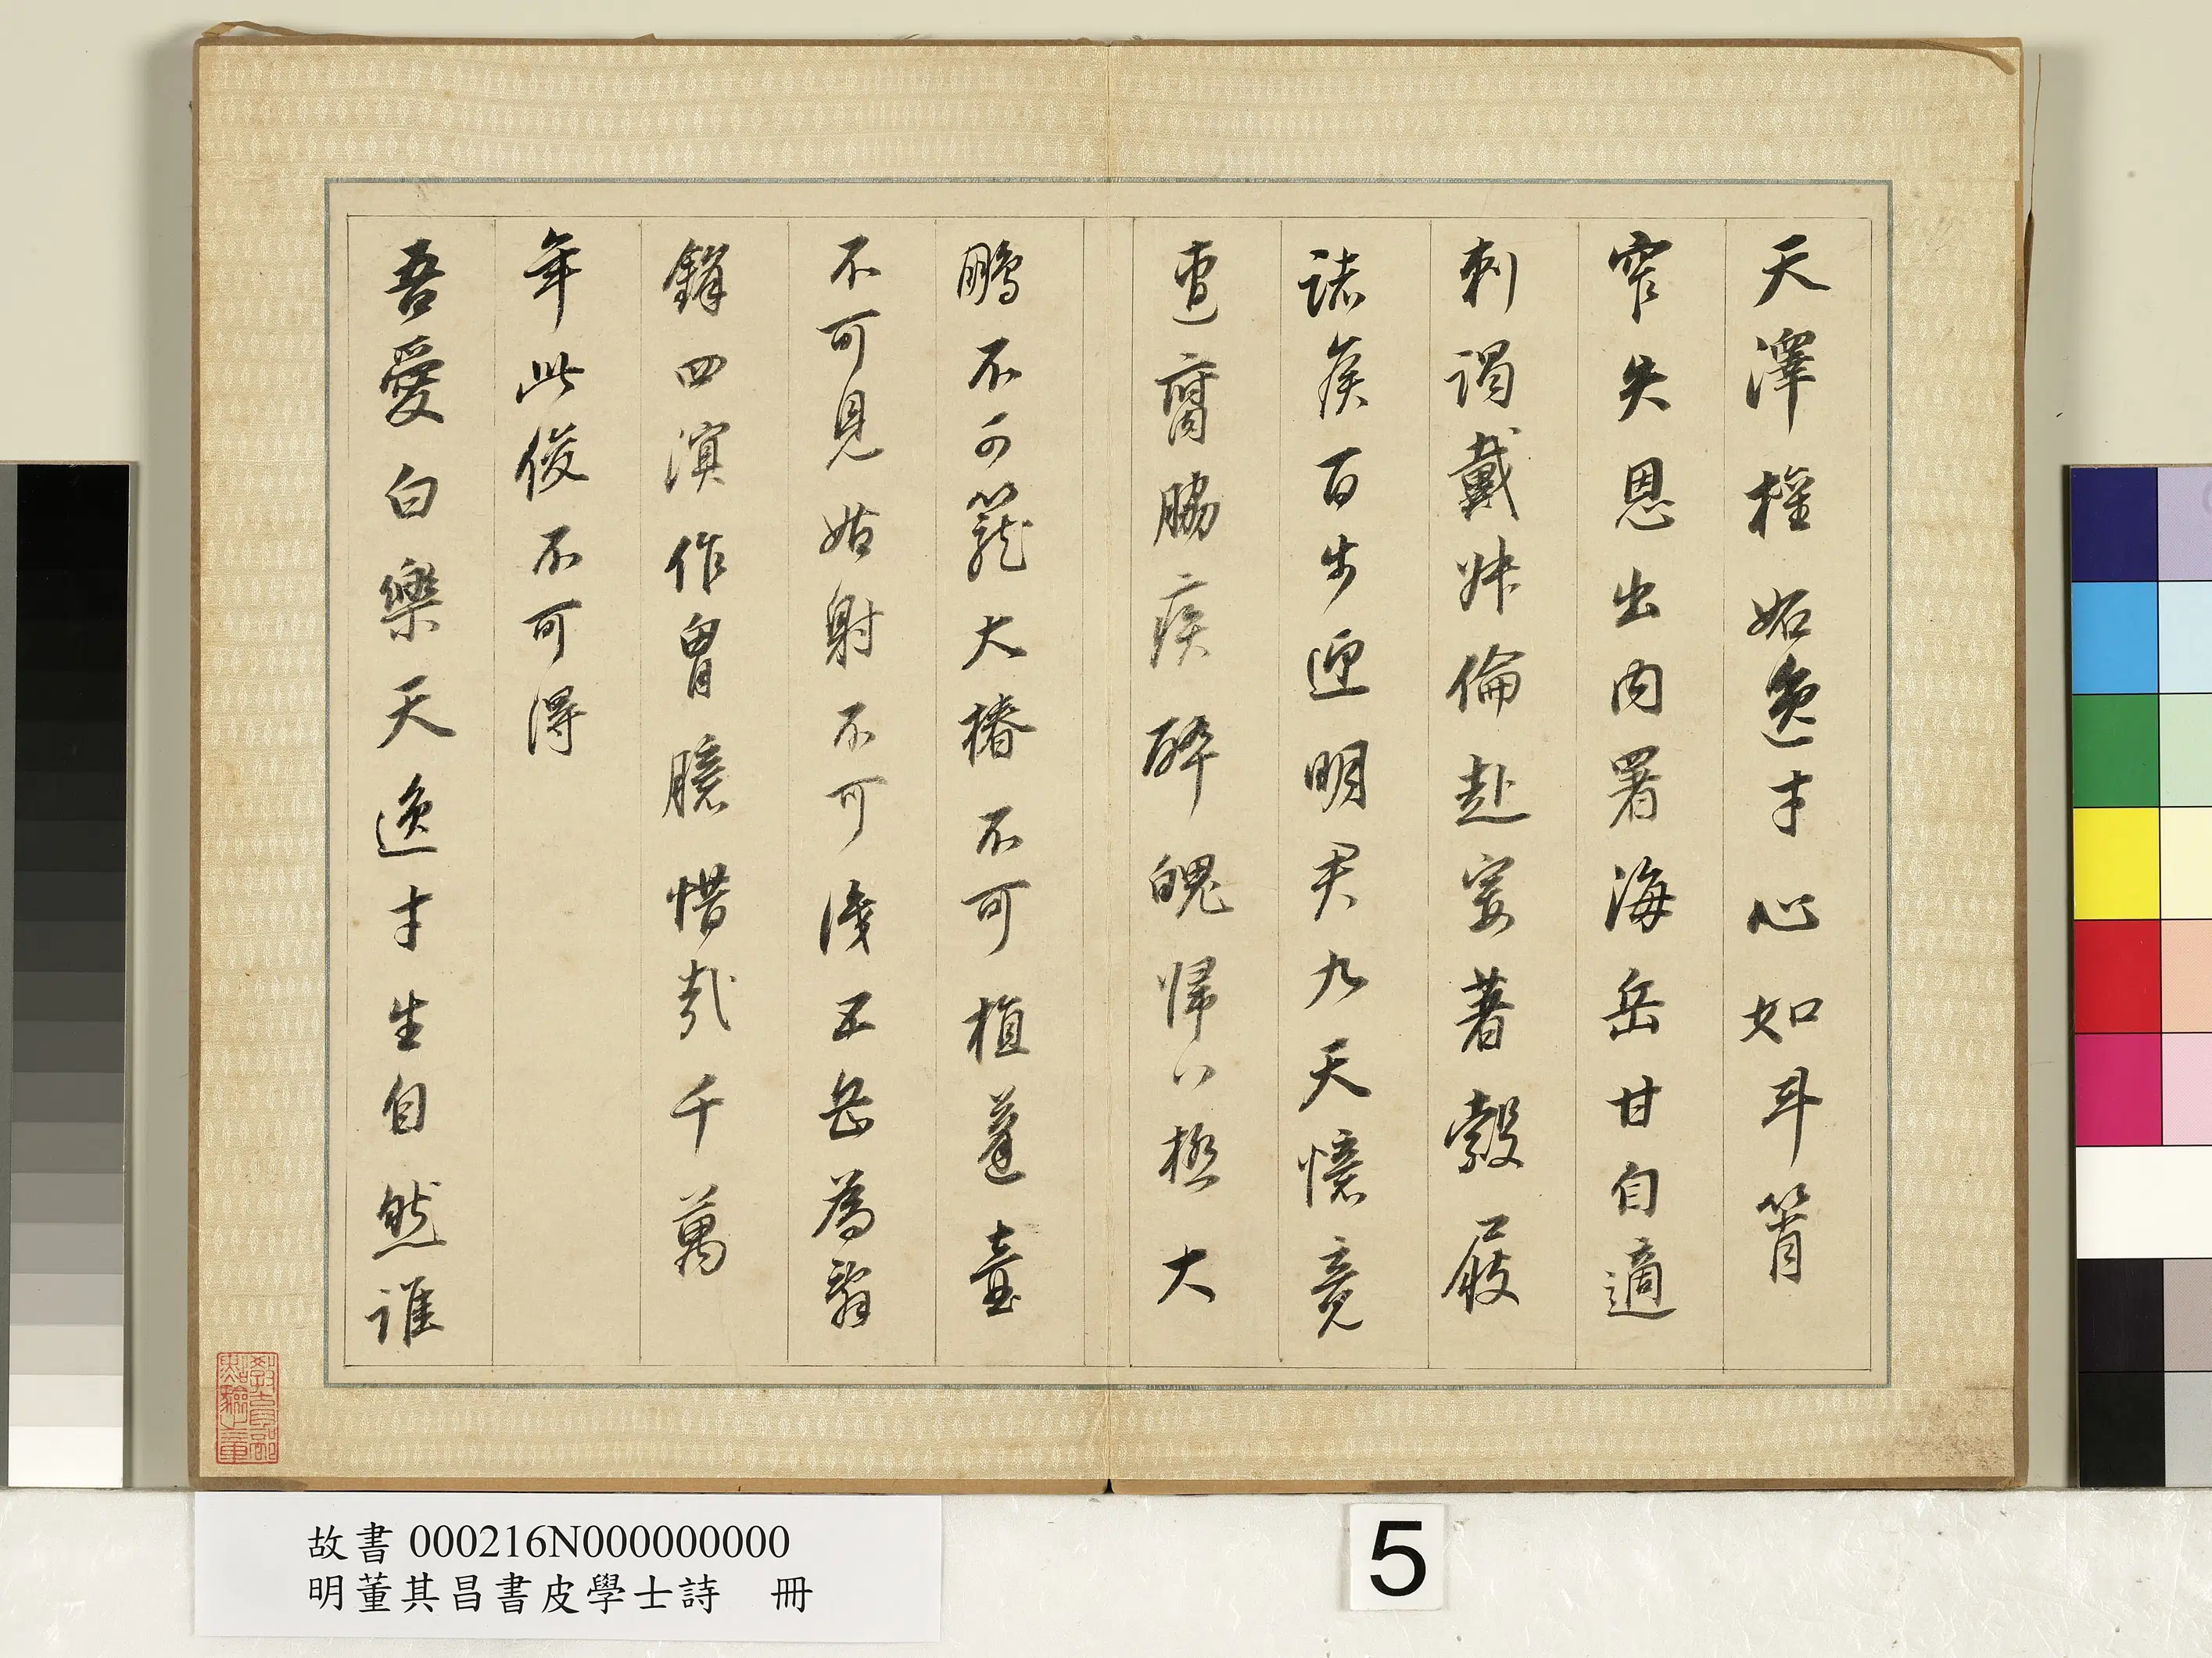 天澤權妬逸才心如斗筲
窄失恩出内署海岳甘自適
刺謁戴倫赴宴著縠屐
諸侯百步迎明君九天憶竟
遭腐脇疾醉魄歸八極大
鵬不可籠大椿不可植蓬臺
不可見姑射不可識五岳為辭
鋒四溟作胷臆惜哉千萬
年此俊不可得
吾愛白樂天逸才生自然誰
教育部點驗之章
故書 000216N000000000
明董其昌書皮學士詩　冊
5